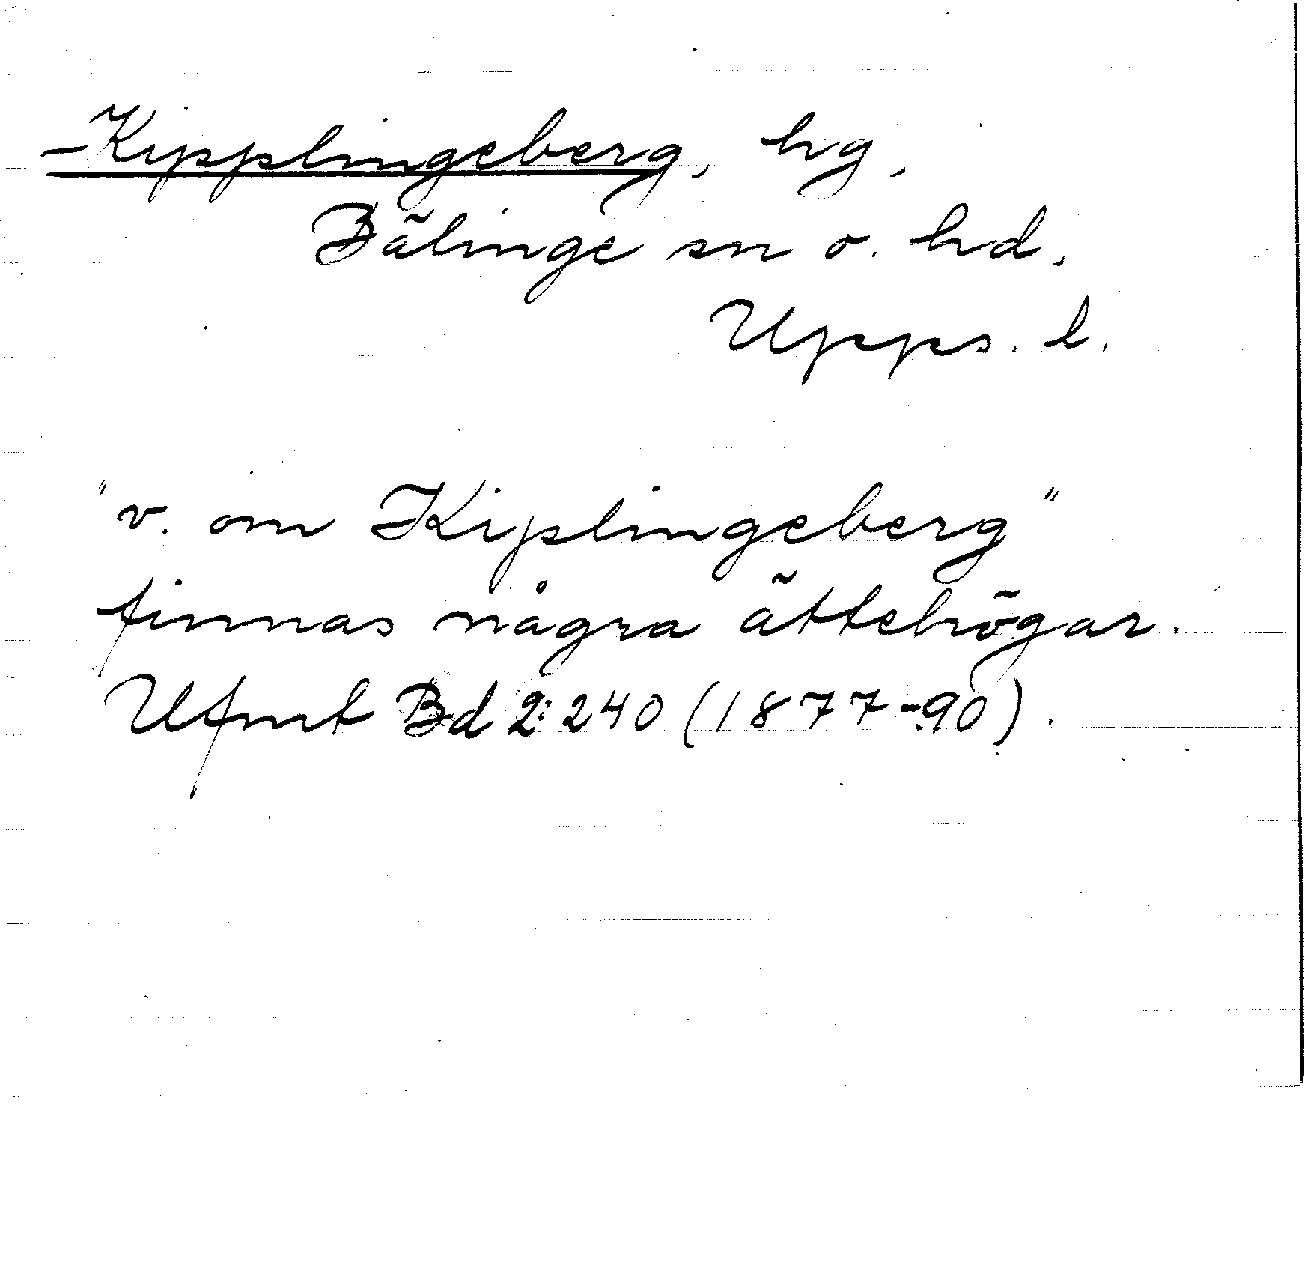 Kipplingeberg, hg,
Bälinge sn o. hd,
Upps. l.
"v. om Kiplingeberg"
finnas några ättehögar.
Ufmt Bd 2:240 (1877-90).